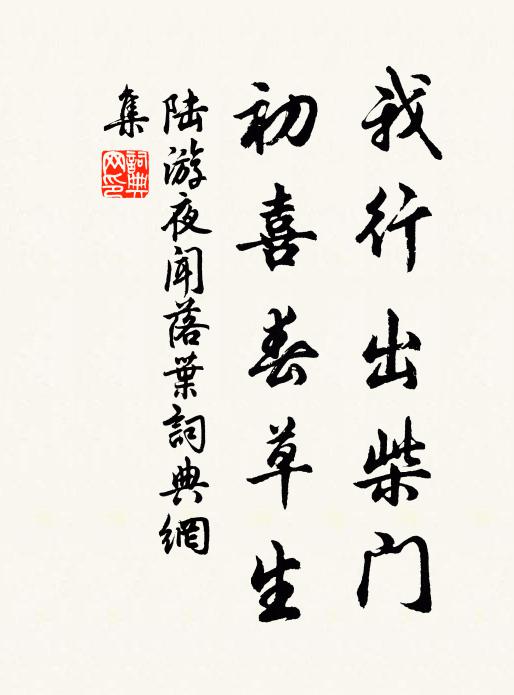 我行出柴门
初喜春草生
陆游夜闻落葉詞典網
集
詞典
网印